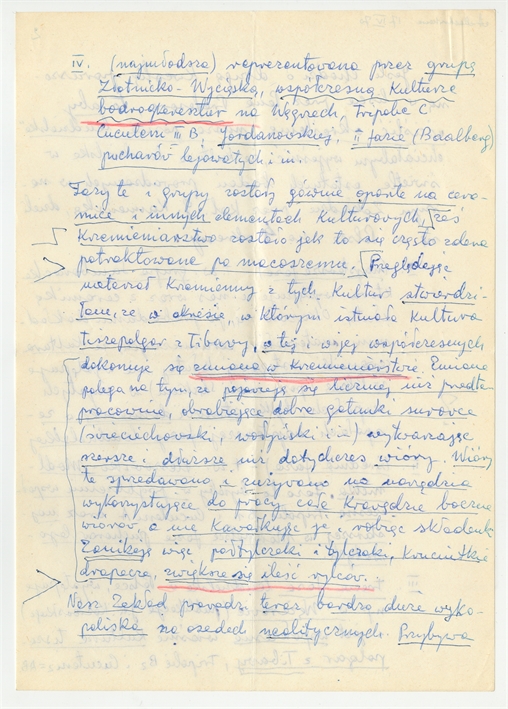 IV. (najmłodsza) reprezentowana przez grupę
Złotnicko-Wycięską, współczesną Kulturze
bodrogkeresztur na Węgrzech, Tripolie C
Cucuteni III B, Jordanowskiej, II fazie (Baalberg)
pucharów lejowatych i in.
Fazy te i grupy zostały głównie oparte na cera-
mice i innych elementach Kulturowych, zaś
Krzemieniarstwo zostało jak to się często zdarza
potraktowane po macoszemu. Przeglądając
materiał Krzemienny z tych Kultur stwierdzi-
łam, że w okresie, w którym istniała Kultura
tiszapolgar z Tibavy, i jej współczesnych
dokonuje się zmiana w Krzemieniarstwie. Zmiana
polega na tym, że pojawiają się liczniej niż przedtem
pracownie, obrabiające dobre gatunki surowca
(świeciechowski, wołyński i in) wytwarzające
szersze i dłuższe niż dotychczas wióry. Wióry
te sprzedawano, i zużywano na narzędzia
wykorzystujące do pracy całe Krawędzie boczne
wiórów, a nie Kawałkując je i robiąc składanki
Zanikają więc półtylczaki i tylczaki, Krótkie
drapacze, zwiększa się ilość rylców.
Nasz Zakład prowadzi teraz bardzo duże wyko-
paliska na osadach neolitycznych. Przybywa